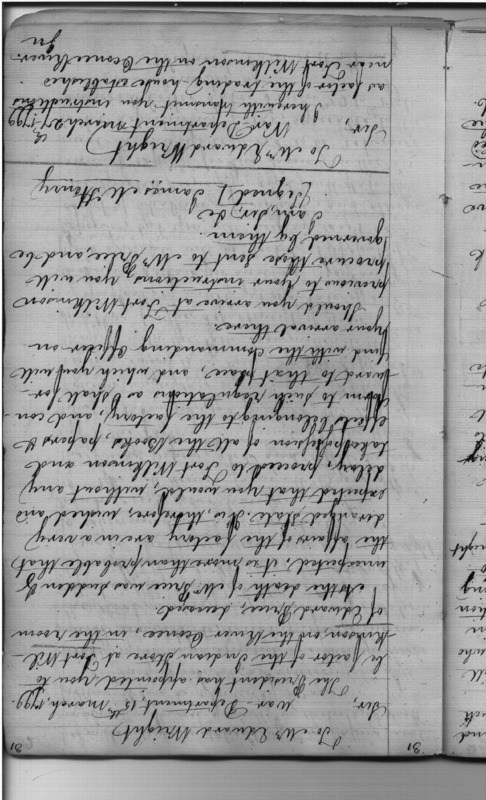 31
To Mr Edward Wright
War Department 15th March 1799.
Sir,
The President has appointed you to
be factor of the Indian Store at Fort Wil-
kinson, on the River Oconee, in the room
of Edward Price, deceased
As the death of Mr Price was sudden &
unexpected, it is more than probable that
the affairs of the factory are in a very
deranged State. It is, therefore, wished and
expected that you would, without any
delay, proceed to Fort Wilkinson and
take possession of all the Books, papers &
effects belonging to the factory, and con-
form to such regulations as shall for-
ward to that place, and which you will
find with the Commanding Officer on
your arrival there.
Should you arrive at Fort Wilkinson
previous to your instructions, you will
procure those sent to Mr Price, and be
governed by them.
I am, Sir, &c
[signed] James McHenry
To Mr Edward Wright
War Department March 27th 1799
Sir,
I herewith transmit you instructions
as factor of the trading house established
near Fort Wilkinson on the Oconee River.
In
31